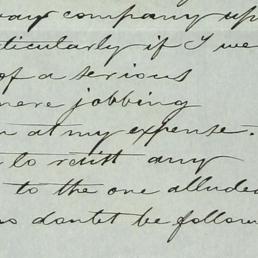 way company up
ticularly if I we
of a serious
mere jobbing
at my expense.
to resist any
to the one alluded
doubt be follow